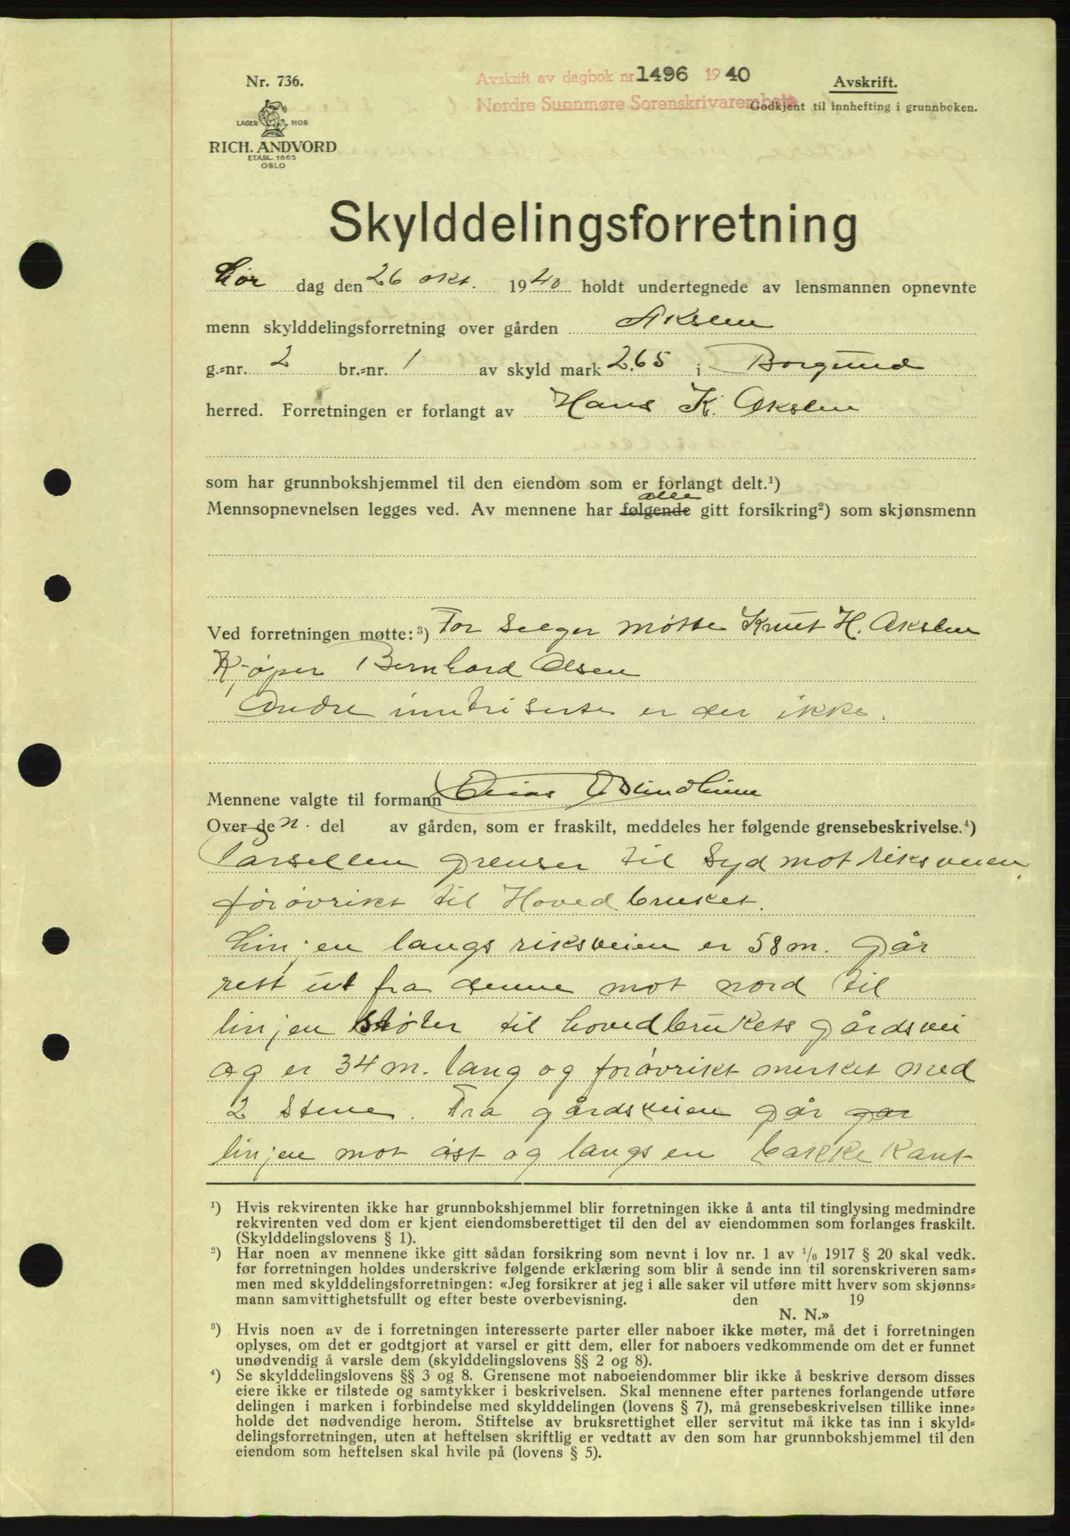 Nr. 736.
LAGER HOS
RICH. ANDVORD
ETABL. 1865
OSLO
Avskrift av dagbok nr 1496 1940
Nordre Sunnmøre Sorenskrivarembete
Avskrift.
Godkjent til innhefting i grunnboken.
Skylddelingsforretning
Lør dag den 26 okt. 1940 holdt undertegnede av lensmannen opnevnte
menn skylddelingsforretning over gården Akslen
g.-nr. 2 br.-nr. 1 av skyld mark 2.65 i Borgund
herred. Forretningen er forlangt av Hans K. Akslen
som har grunnbokshjemmel til den eiendom som er forlangt delt.¹)
alle
Mennsopnevnelsen legges ved. Av mennene har følgende gitt forsikring²) som skjønsmenn
Ved forretningen møtte:³) For Selger møtte Knut H. Akslen
Kjøper Bernhard Olsen
Andre inntriserte er der ikke.
Mennene valgte til formann Elias O Blindheim
Over den del av gården, som er fraskilt, meddeles her følgende grensebeskrivelse.⁴)
Parsellen grenser til Syd mot riksveien,
forøvrikt til Hovedbruket.
Linjen langs riksveien er 58 m. går
rett ut fra denne mot nord til
linjen støter til hovedbrukets gårdsvei
og er 34 m. lang og forøvrikt merket med
2 Stene. Fra gårdsveien går gar
linjen mot øst og langs en bakkekant
¹) Hvis rekvirenten ikke har grunnbokshjemmel blir forretningen ikke å anta til tinglysing medmindre
rekvirenten ved dom er kjent eiendomsberettiget til den del av eiendommen som forlanges fraskilt.
(Skylddelingslovens § 1).
²) Har noen av mennene ikke gitt sådan forsikring som nevnt i lov nr. 1 av ¹/₆ 1917 § 20 skal vedk.
før forretningen holdes underskrive følgende erklæring som blir å sende inn til sorenskriveren sam-
men med skylddelingsforretningen: «Jeg forsikrer at jeg i alle saker vil utføre mitt hverv som skjønns-
mann samvittighetsfullt og efter beste overbevisning. den 19
N. N.»
³) Hvis noen av de i forretningen interesserte parter eller naboer ikke møter, må det i forretningen
oplyses, om det er godtgjort at varsel er gitt dem, eller for naboers vedkommende om det er funnet
unødvendig å varsle dem (skylddelingslovens §§ 2 og 8).
⁴) Se skylddelingslovens §§ 3 og 8. Grensene mot naboeiendommer blir ikke å beskrive dersom disses
eiere ikke er tilstede og samtykker i beskrivelsen. Skal mennene efter partenes forlangende utføre
delingen i marken i forbindelse med skylddelingen (lovens § 7), må grensebeskrivelsen tillike inne-
holde det nødvendige herom. Stiftelse av bruksrettighet eller servitut må ikke tas inn i skyld-
delingsforretningen, uten at heftelsen skriftlig er vedtatt av den som har grunnbokshjemmel til den
eiendom som heftelsen skal hvile på (lovens § 5).